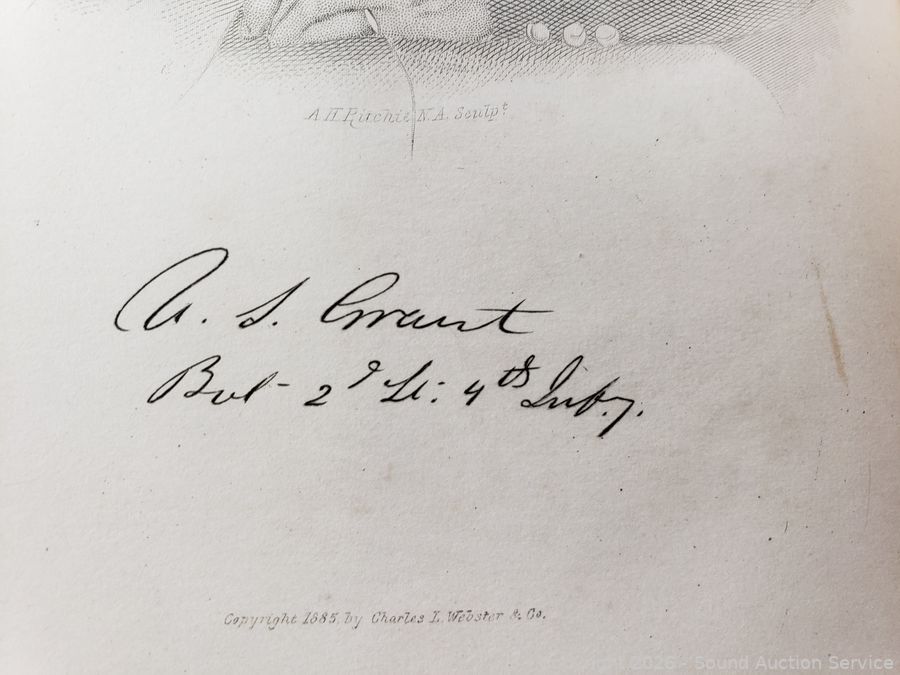 A H Ritchie N.A. Sculpᵗ
U. S. Grant
Bvt 2ᵈ Lt. 4ᵗʰ Inf.y.
Copyright 1885, by Charles L. Webster & Co.
2026 - Sound Auction Service